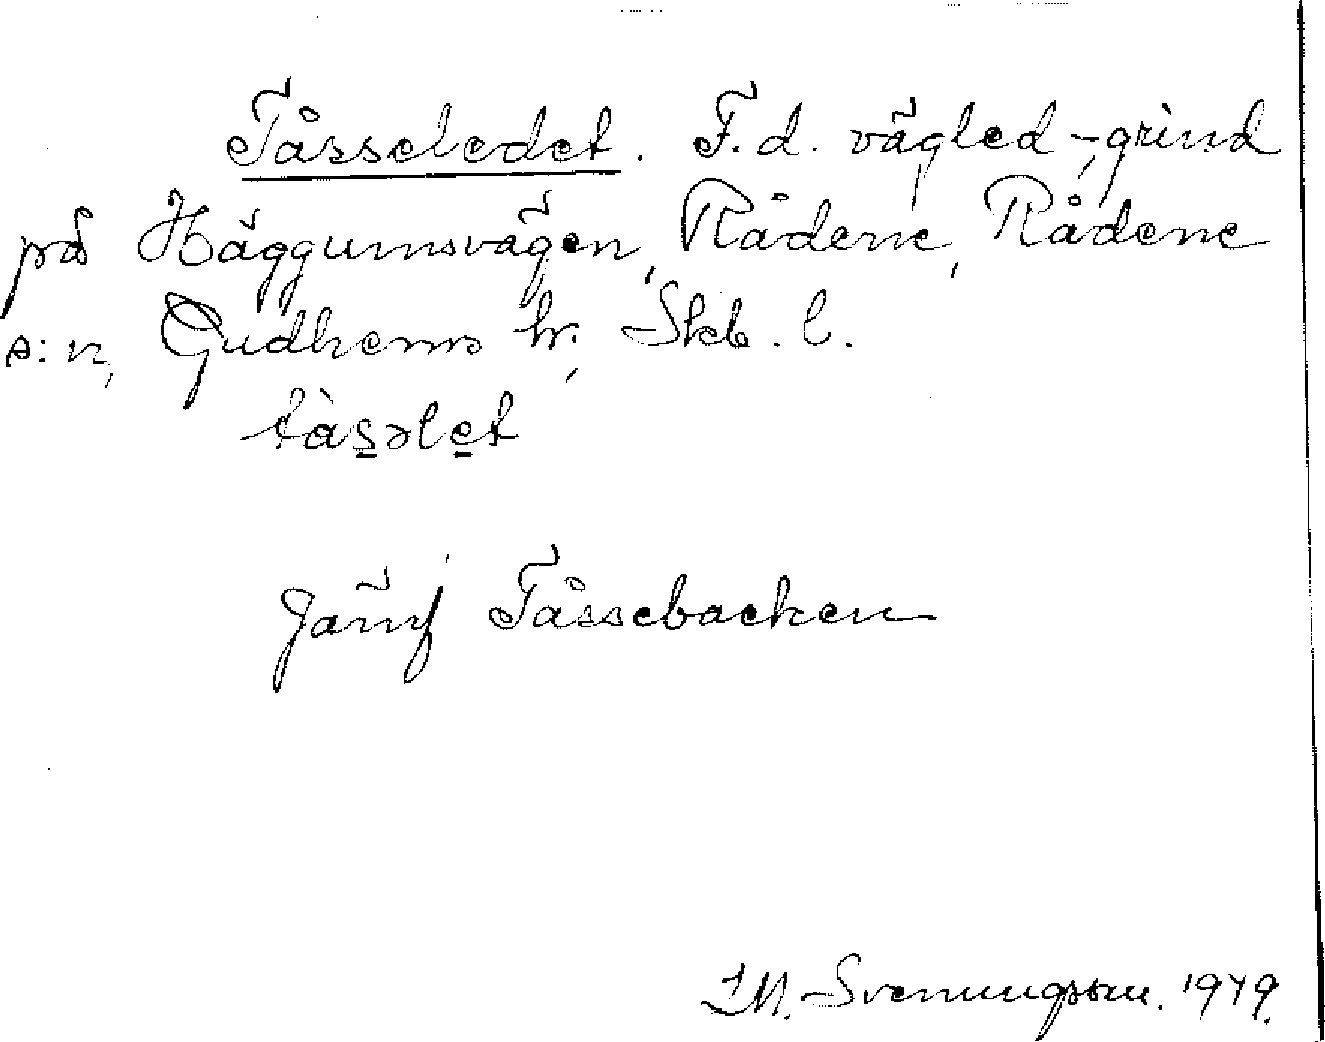 Tåsseledet. F.d. vägled, -grind
på Häggumsvägen, Rådene, Rådene
s:n, Gudhems hr, Skb. l.
tàs̠əle̠t
Jämf Tåssebacken
I.M. Svenungsson. 1949.